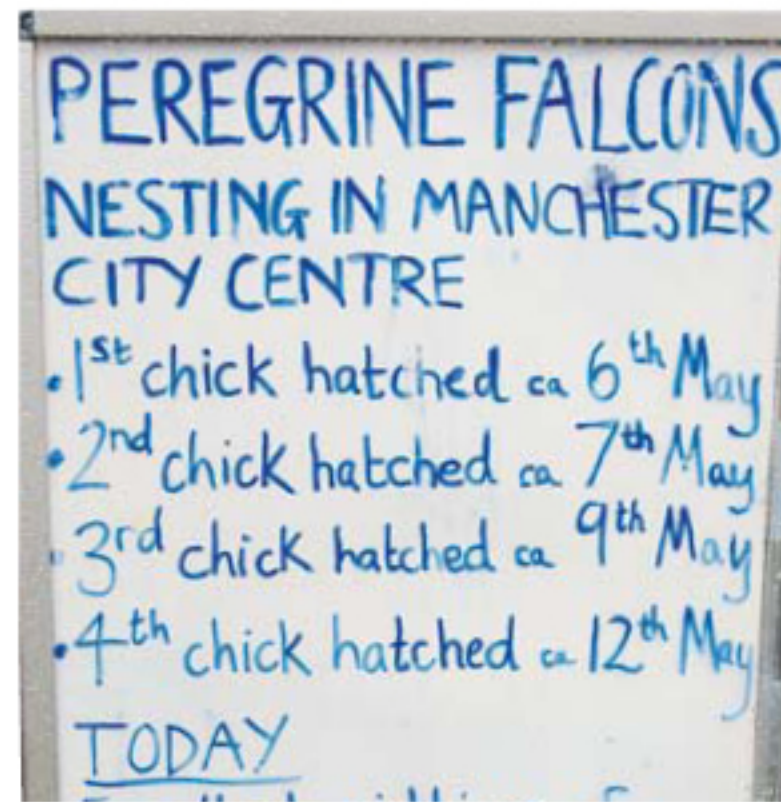 PEREGRINE FALCONS
NESTING IN MANCHESTER
CITY CENTRE
• 1st chick hatched ca 6th May
• 2nd chick hatched ca 7th May
• 3rd chick hatched ca 9th May
• 4th chick hatched ca 12th May
TODAY